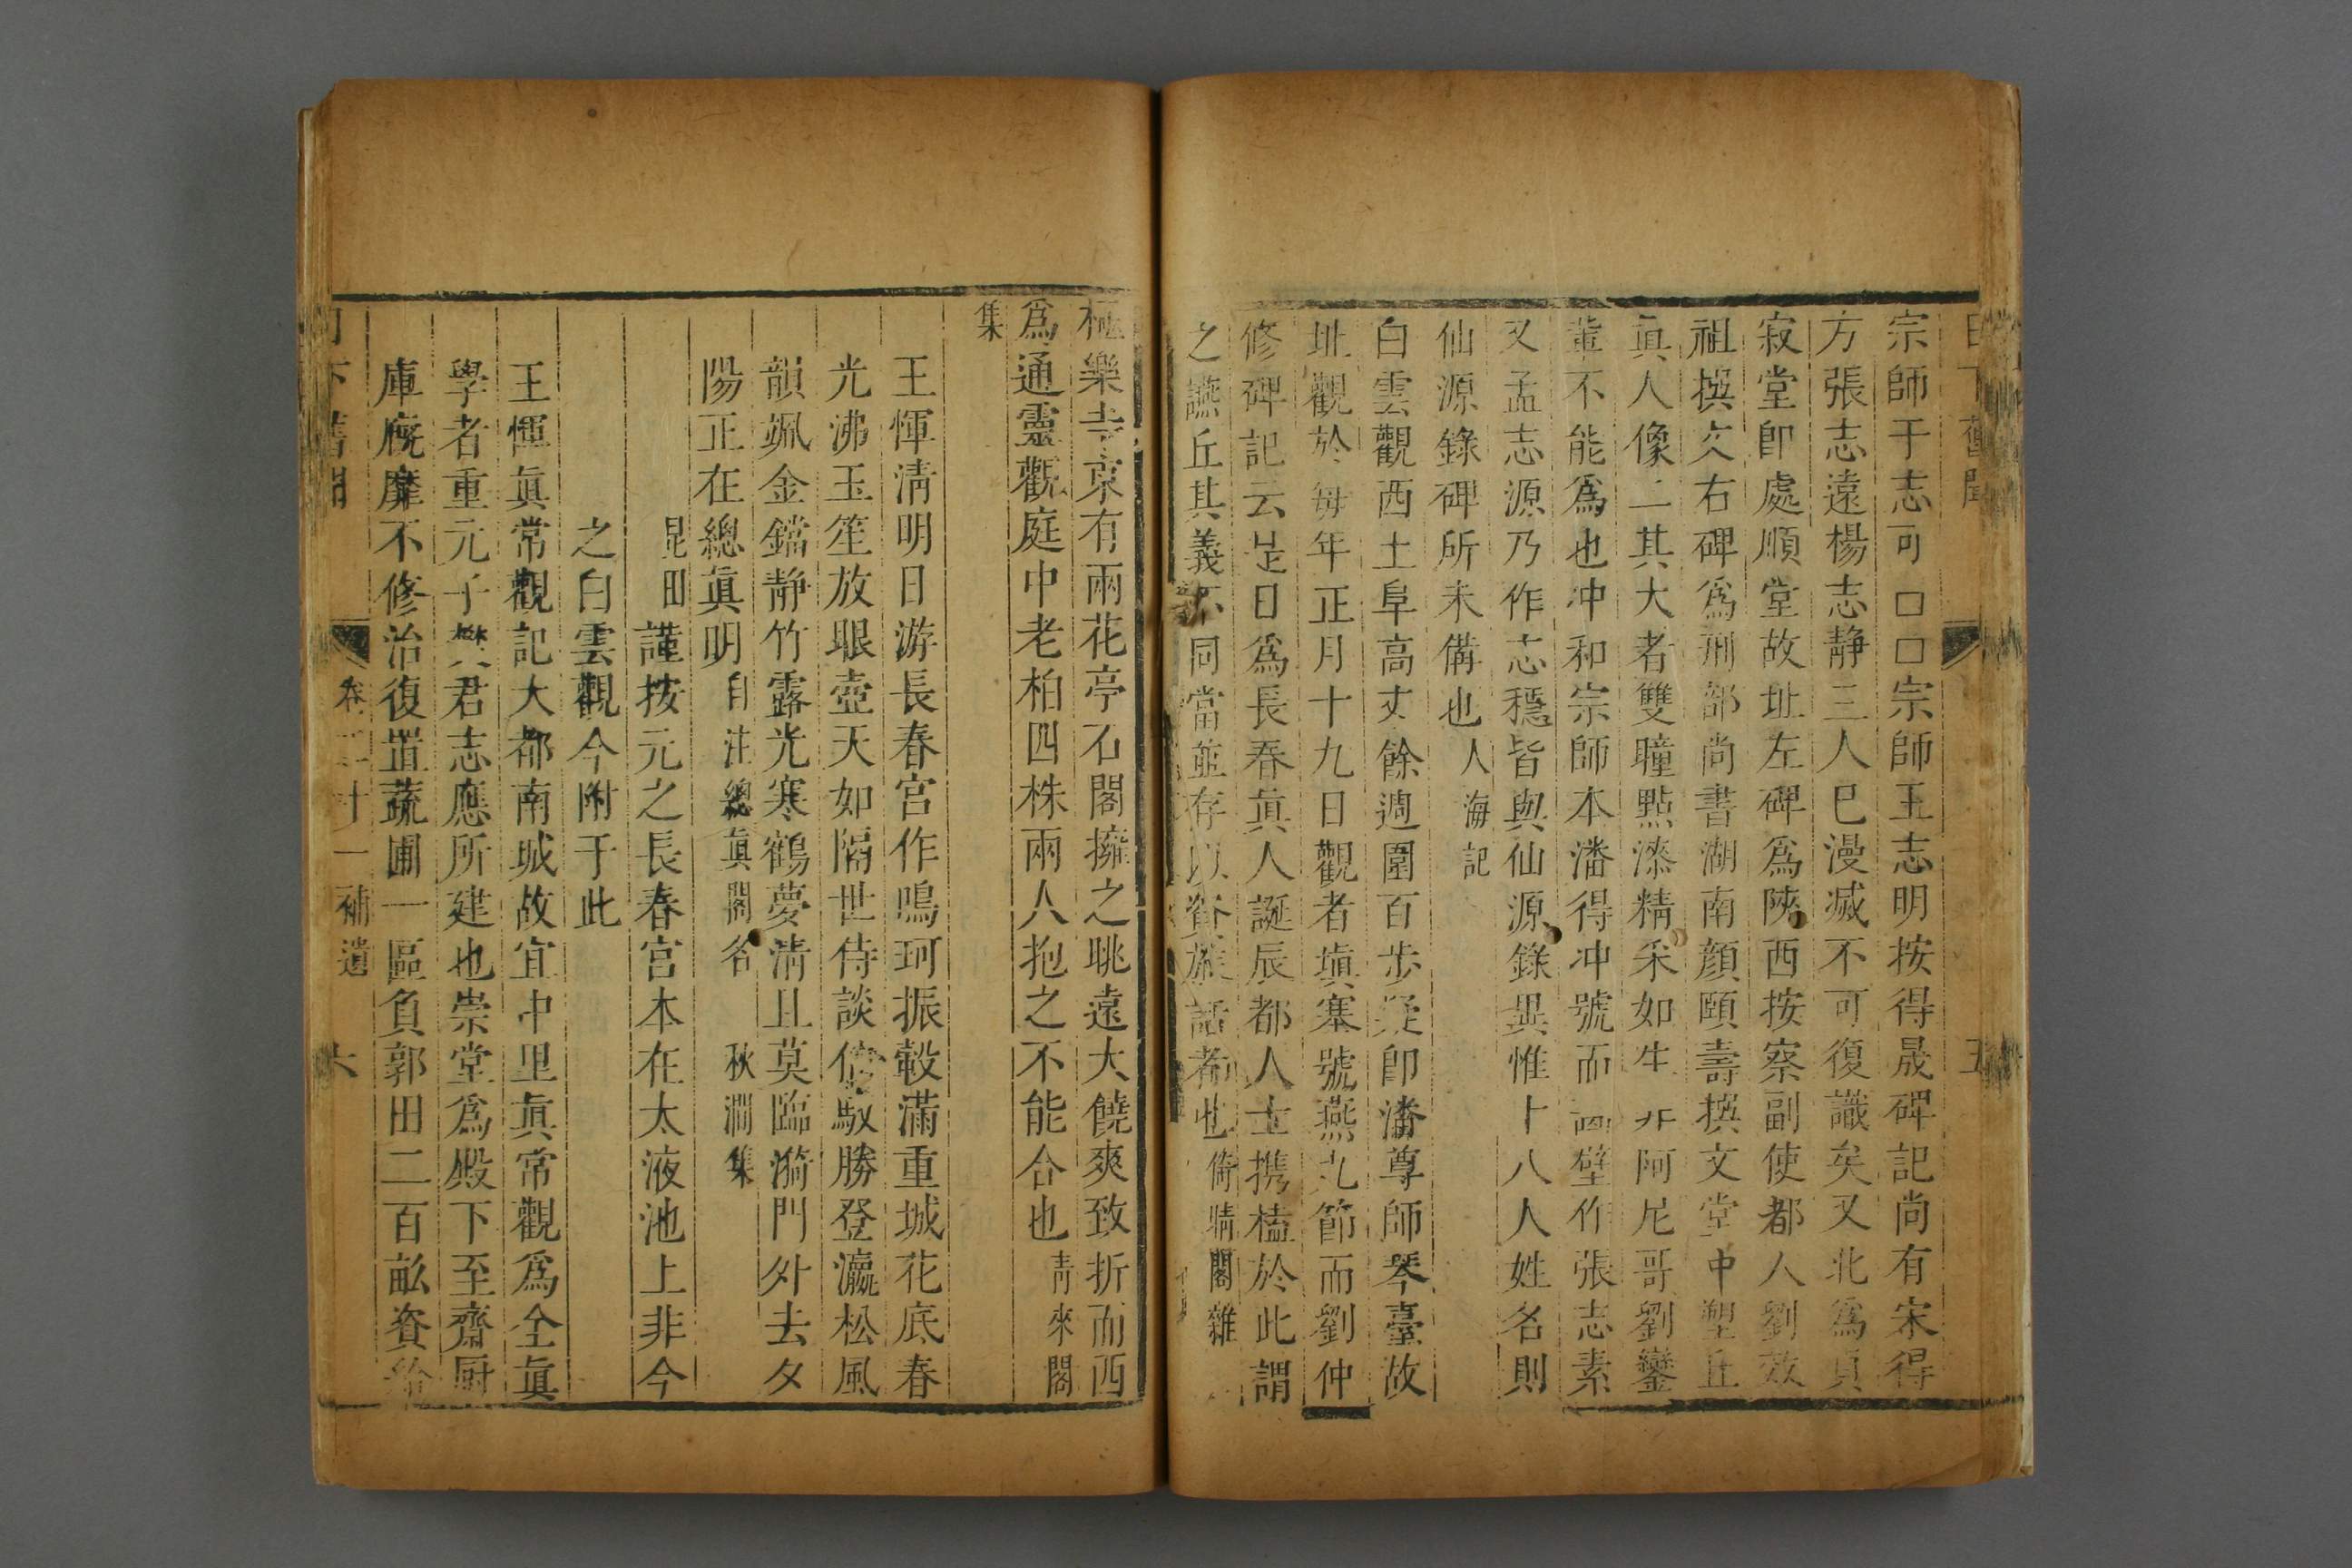 日下舊聞
五
宗師于志可□□宗師王志明按得晟碑記尚有宋得
方張志遠楊志静三人已漫滅不可復識矣又北為貞
寂堂卽處順堂故址左碑爲陝西按察副使都人劉效
祖撰文右碑爲刑部尚書湖南顏頤壽撰文堂中塑丘
真人像二其大者雙瞳點漆精采如生非阿尼哥劉鑾
輩不能爲也冲和宗師本潘得冲號而西壁作張志素
又孟志源乃作志穩皆與仙源錄異惟十八人姓名則
仙源錄碑所未備也人海記
白雲觀西土阜高丈餘週圍百步疑卽潘尊師琴臺故
址觀於每年正月十九日觀者塡塞號燕九節而劉仲
修碑記云是日爲長春真人誕辰都人士携榼於此謂
之讌丘其義不同當並存以資叢話者也倚晴閣雜
極樂寺京有兩花亭石閣擁之眺遠大饒爽致折而西
爲通靈觀庭中老柏四株兩人抱之不能合也青來閣
集
王惲淸明日游長春宮作鳴珂振轂滿重城花底春
光沸玉笙放眼壺天如隔世侍談僊馭勝登瀛松風
韻颯金鐺静竹露光寒鶴夢淸且莫臨漪門外去夕
陽正在總真明自注總真閣名 秋澗集
昆田謹按元之長春宮本在太液池上非今
之白雲觀今附于此
王惲真常觀記大都南城故宜中里真常觀爲全真
學者重元子樊君志應所建也崇堂爲殿下至齋厨
庫廐靡不修治復置蔬圃一區負郭田二百畝資給
日下舊聞
卷二十一補遺
六